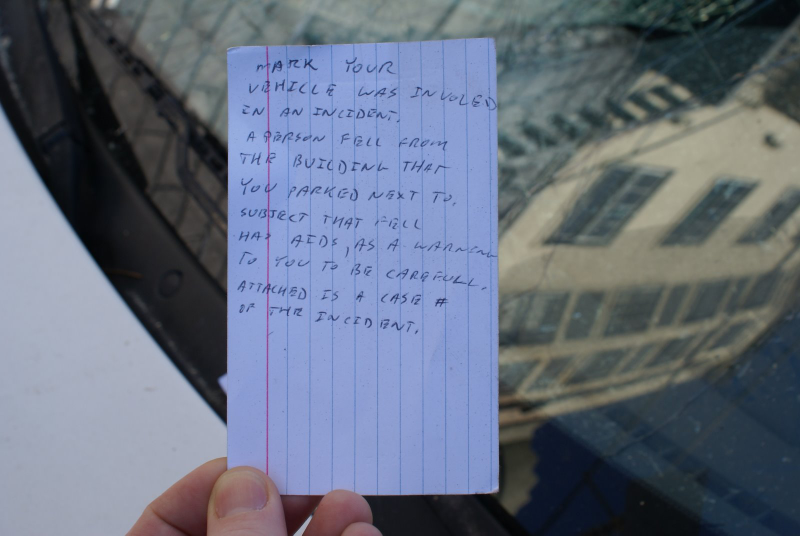 MARK YOUR
VEHICLE WAS INVOLED
IN AN INCIDENT.
A PERSON FELL FROM
THE BUILDING THAT
YOU PARKED NEXT TO.
SUBJECT THAT FELL
HAS AIDS, AS A WARNING
TO YOU TO BE CAREFULL.
ATTACHED IS A CASE #
OF THE INCIDENT.